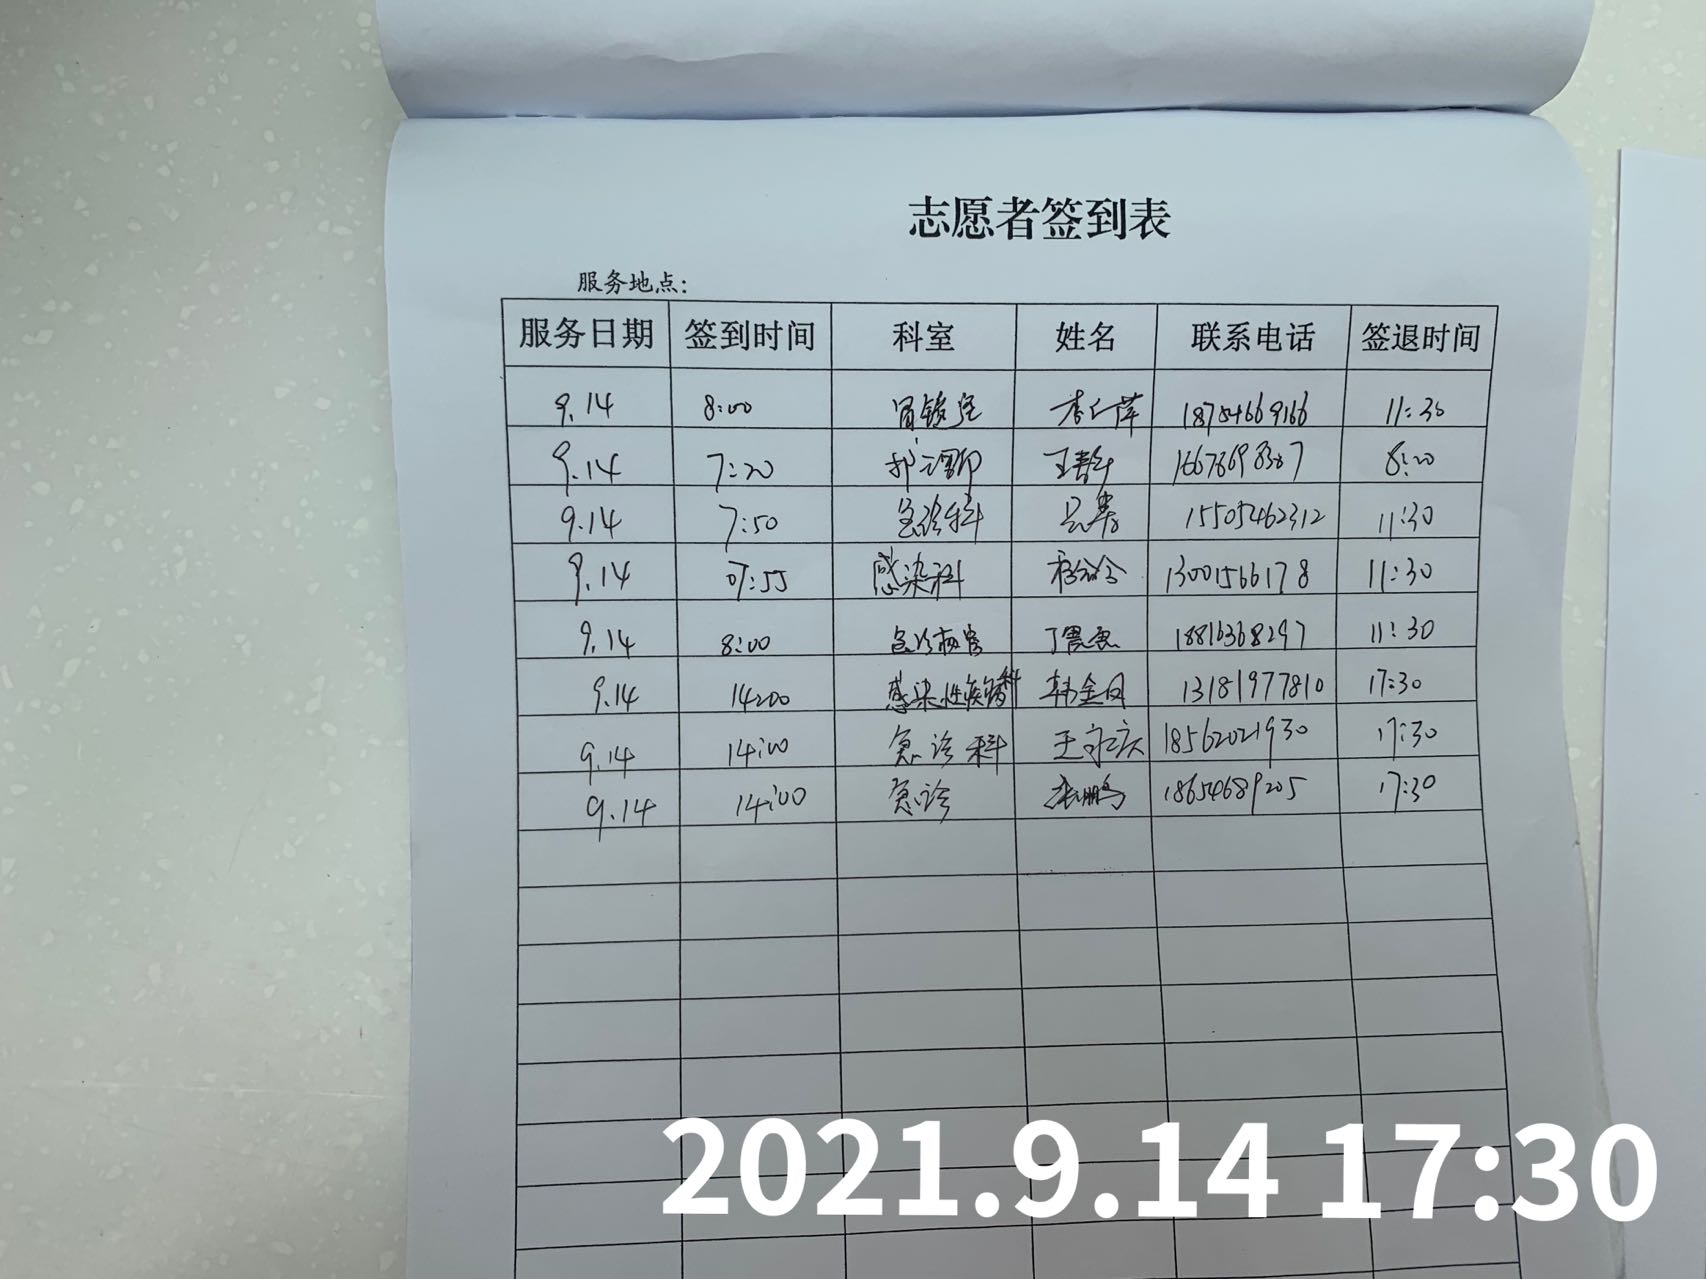 志愿者签到表
服务地点:
服务日期 签到时间 科室 姓名 联系电话 签退时间
9.14 8:00 11:30
9.14 7:20 8:20
9.14 7:50 急诊科 15505462312 11:30
9.14 07:55 感染科 13001566178 11:30
9.14 8:00 18816368297 11:30
9.14 14:00 感染性疾病科 韩金日 13181977810 17:30
9.14 14:00 急诊科 王守庆 18562021930 17:30
9.14 14:00 急诊 张鹏 18654689205 17:30
2021.9.14 17:30